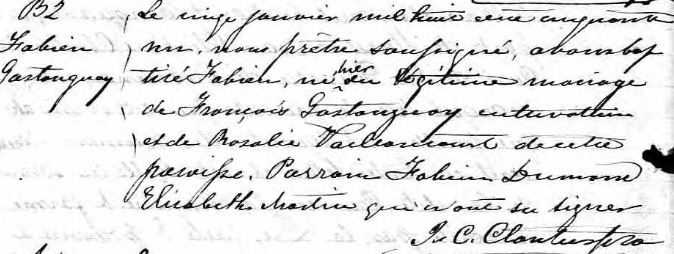 B2
Fabien
Gastonguay
Le vingt janvier mil huit cent cinquante
un, nous prêtre soussigné, avons bap
tisé Fabien, né hier du légitime mariage
de François Gastonguay cultivateur
et de Rosalie Vaillancourt de cette
paroisse. Parrain Fabien Dumond
Elisabeth Martin qui n'ont su signer